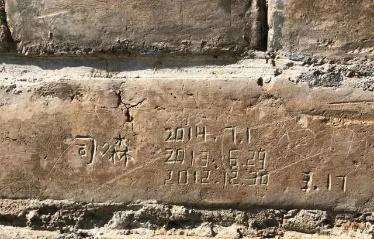 司森
2014.7.1
2013.6.29
2012.12.30
3.17